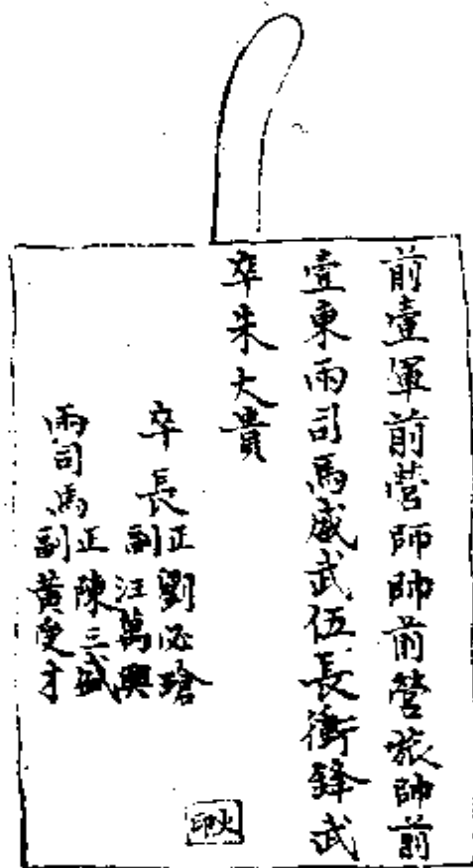 前壹軍前營師帥前營旅帥前
壹東兩司馬威武伍長衝鋒武
卒朱大貴
卒長
正劉必瑲
副汪萬興
兩司馬
正陳三盛
副黃受才
火印